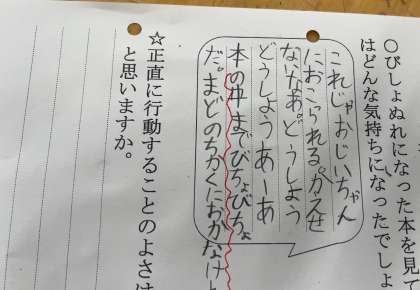 ○びしょぬれになった本を見て
はどんな気持ちになったでしょ
これじゃおじいちゃん
におこられる。かえせ
ないなあ。どうしよう
どうしようあーあ
本の中までびちょびちょ
だ。まどのちかくにおかなけ
☆正直に行動することのよさは
と思いますか。